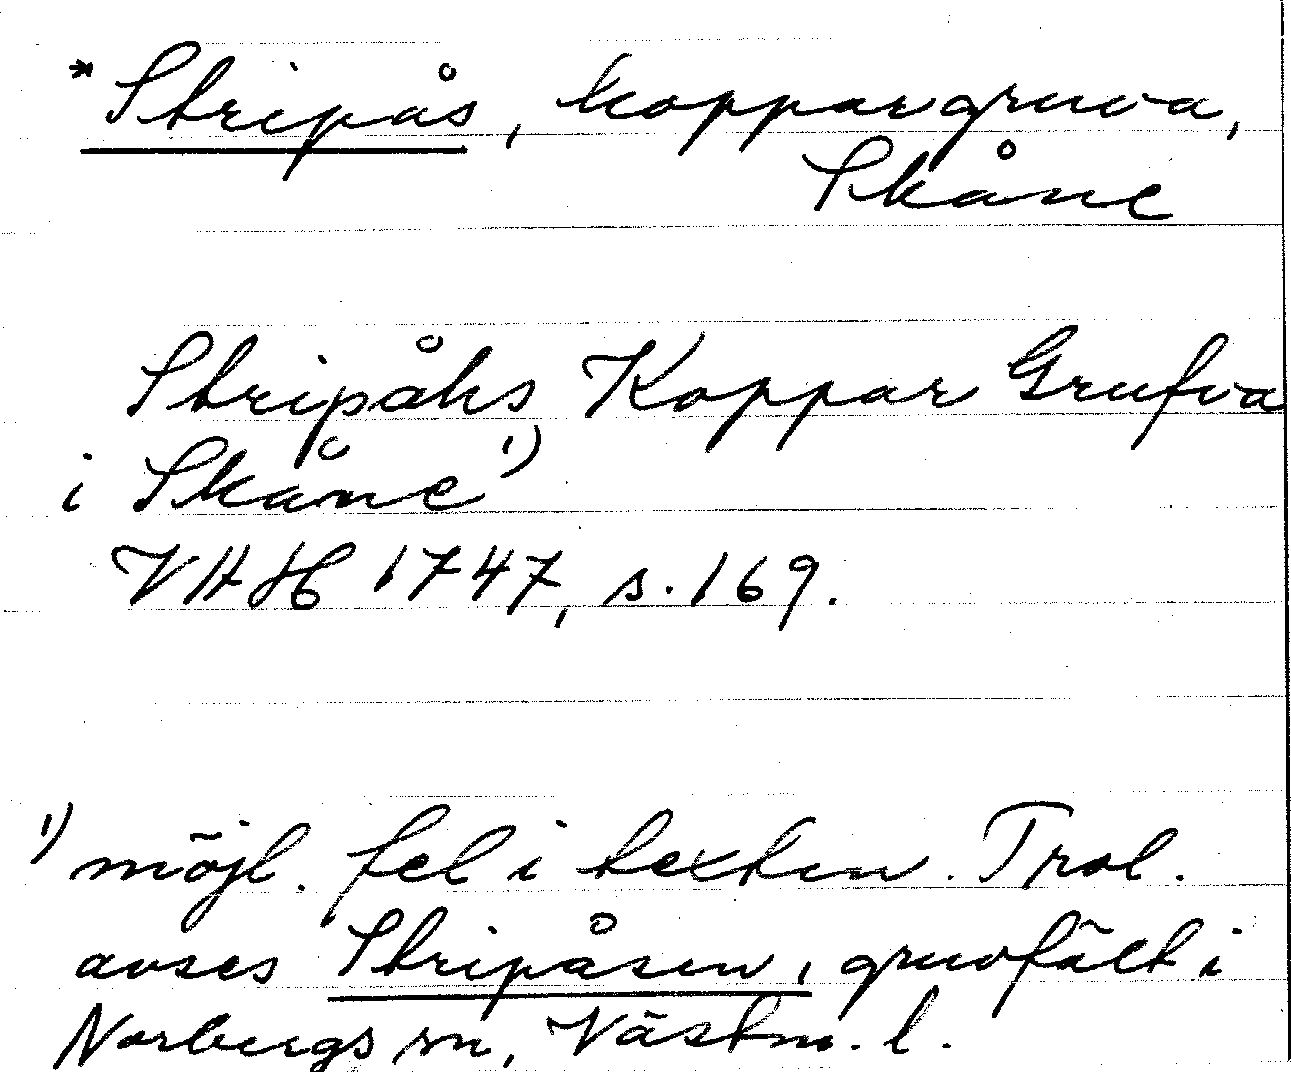 *Stripås, koppargruva,
Skåne
Stripåhs Koppar Grufva
i Skåne 1)
VHH 1747, s. 169.
1) möjl. fel i texten. Trol.
avses Stripåsen, gruvfält i
Norbergs sn, Västm. l.